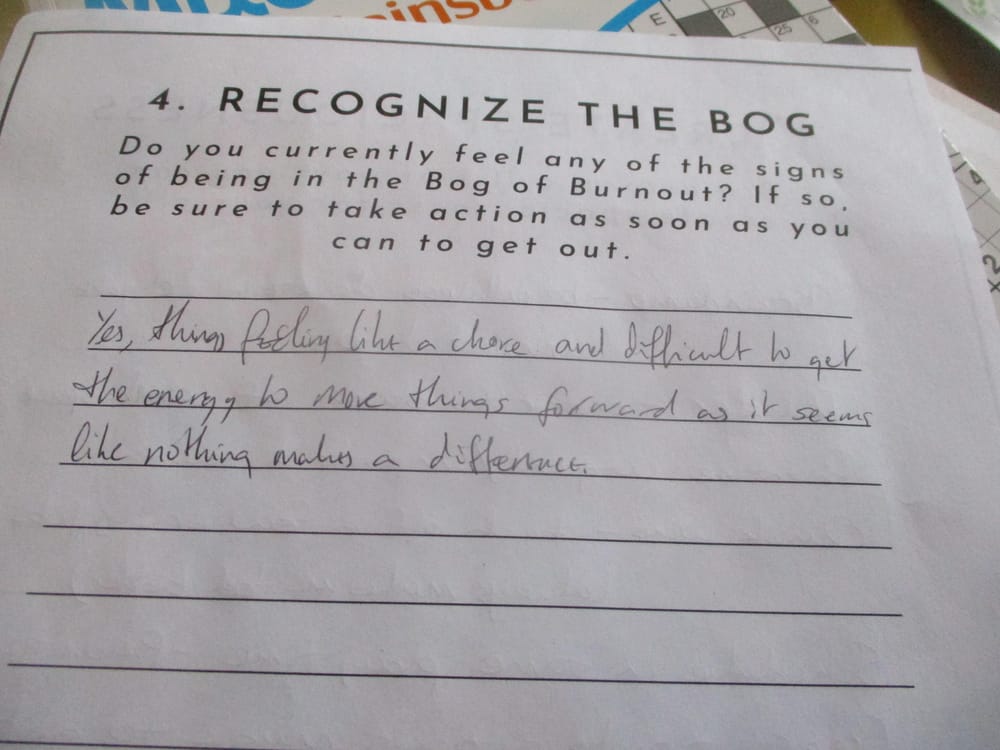 insb
E
20
25
6
4
x2
4. RECOGNIZE THE BOG
Do you currently feel any of the signs
of being in the Bog of Burnout? If so,
be sure to take action as soon as you
can to get out.
Yes, things feeling like a chore and difficult to get
the energy to move things forward as it seems
like nothing makes a difference.